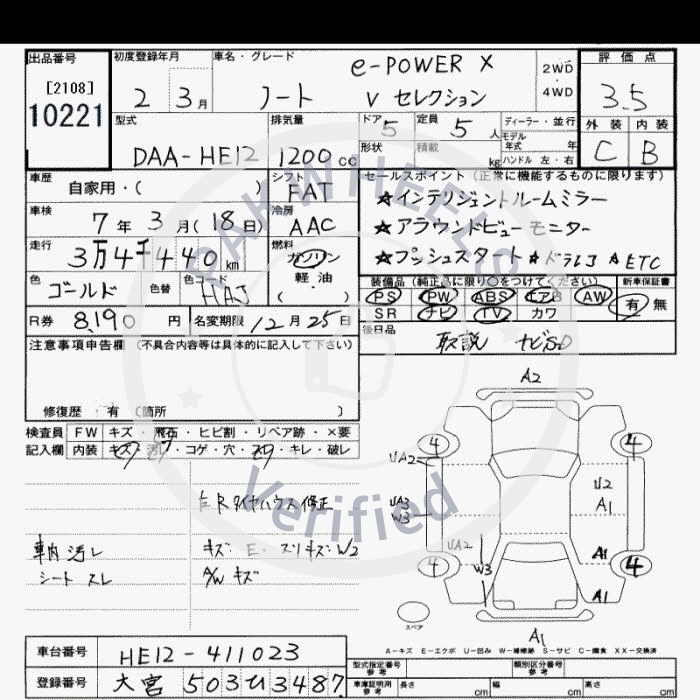 出品番号 初度登録年月 車名・グレード e-POWER X 2WD 評価点
[2108] 2 3月 ノート V セレクション 4WD 3.5
10221 型式 排気量 ドア 5 定員 5人 ディーラー・並行 外装 内装
DAA-HE12 1200cc 形状 積載 kg モデル年式 年 C B
ハンドル 左・右
車歴 自家用・( ) シフト FAT セールスポイント (正常に機能するものに限ります)
車検 7年3月(18日) 冷房 AAC ☆インテリジェントルームミラー
☆アラウンドビューモニター
走行 3万4千440km 燃料 ガソリン ☆プッシュスタート ☆ドラレコ ☆ETC
色 ゴールド 色替 色コード HAJ 軽油 ( ) 装備品 (純正品に限り○をつけてください) 新車保証書
PS PW ABS エアB AW 有 無
R券 8,190円 名変期限 12月25日 SR ナビ TV カワ
注意事項申告欄 (不具合内容等は具体的に記入して下さい) 後日品 取説 ナビSD
修復歴・有 (箇所 )
検査員 FW キズ・飛石・ヒビ割・リペア跡・×要
記入欄 内装 キズ・汚レ・コゲ・穴・スレ・キレ・破レ
A2
4 4
UA2
U2
A1
UA3
W3
UA2
A1
W3
4 4
A1
A1
スペア
車内汚レ キズ・E・スリキズ・W2
シートスレ A/W キズ
A-キズ E-エクボ U-凹み W-補修跡 S-サビ C-腐食 XX-交換済
車台番号 HE12-411023 型式指定番号 参考 類別区分番号 参考
登録番号 大宮 503 ひ 3487 車庫証明用 参考 長さ cm 幅 cm 高さ cm
PAKWHEELS
Verified